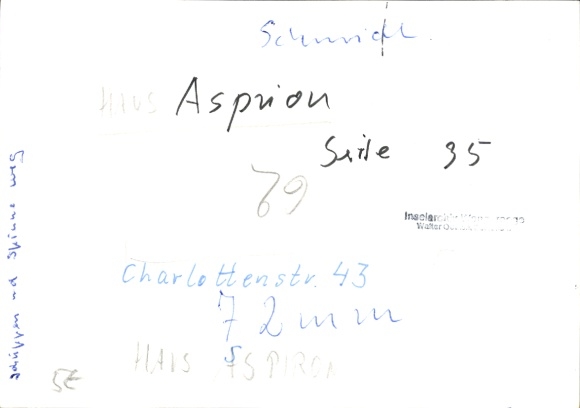 Schmidt.
HAUS Asprion
Seite 35
79
Inselarchiv
Walter
Charlottenstr. 43
72mm
HAUS ASPIRON
und Spinne weg